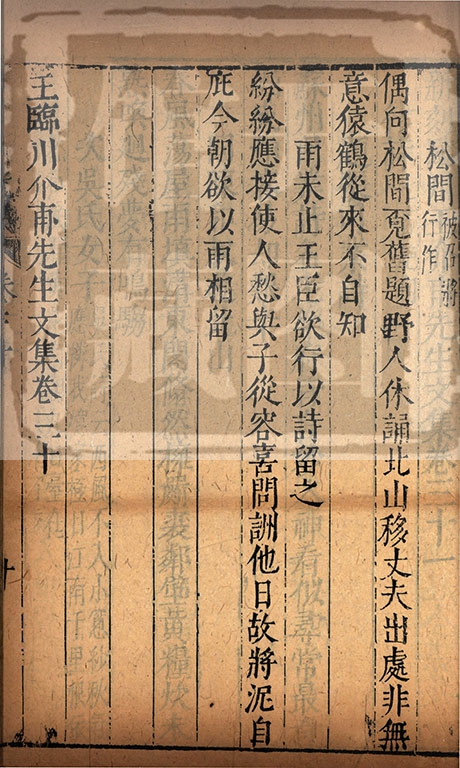 松間被召將行作
偶向松間覓舊題野人休誦北山移丈夫出處非無
意猿鶴從來不自知
雨未止王臣欲行以詩留之
紛紛應接使人愁與子從容喜問詶他日故將泥自
庇今朝欲以雨相留
王臨川介甫先生文集卷三十